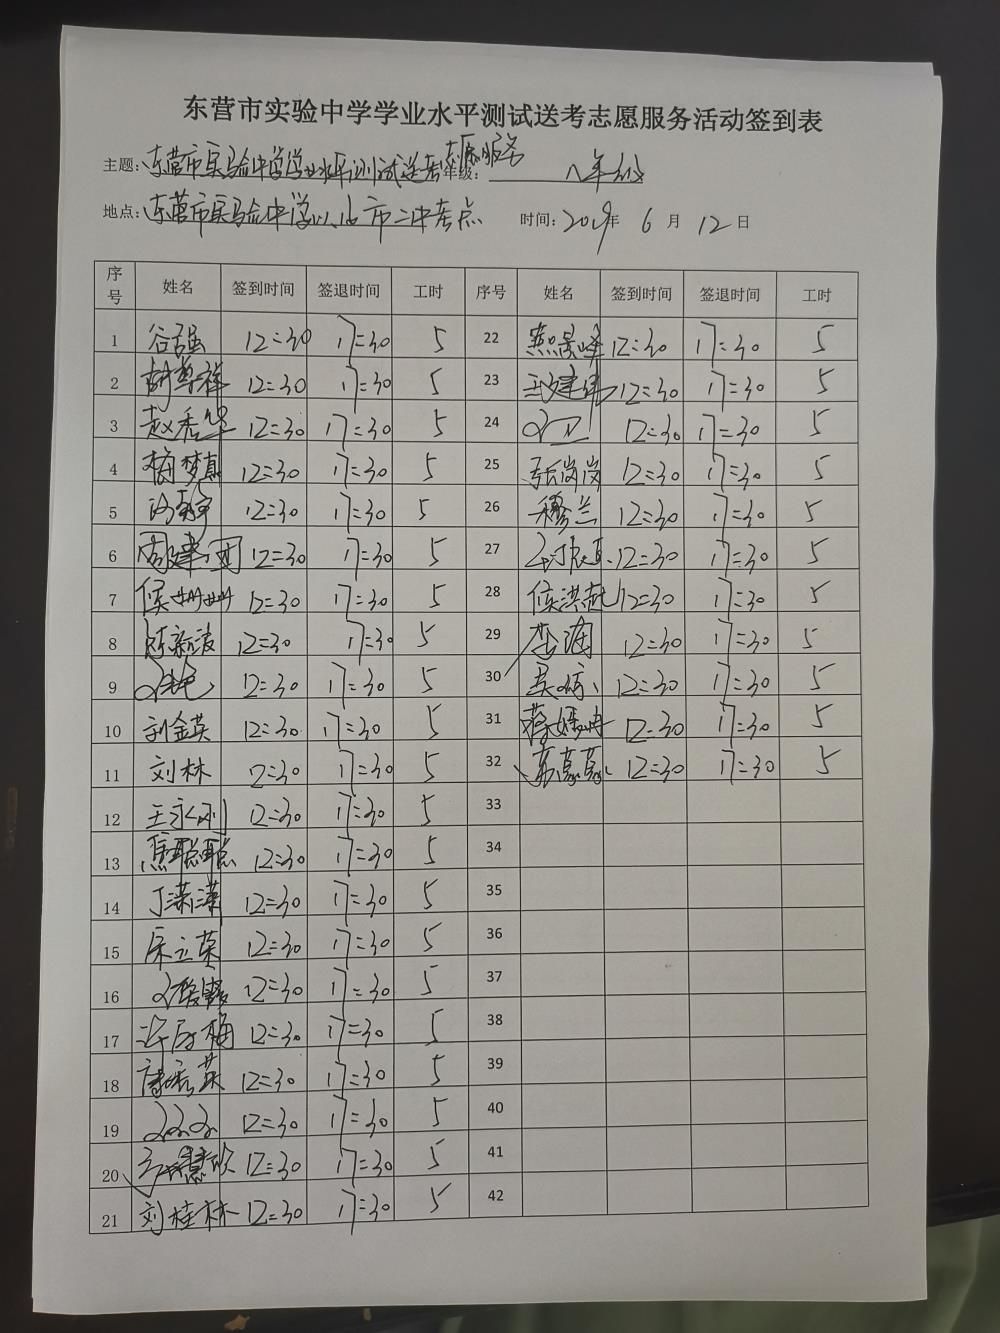 东营市实验中学学业水平测试送考志愿服务活动签到表
主题：东营市实验中学学业水平测试送考志愿服务 年级：八年级
地点：东营市实验中学以北市二中考点 时间：2019年 6 月 12 日
序号 姓名 签到时间 签退时间 工时 序号 姓名 签到时间 签退时间 工时
1 谷强 12=30 17=30 5 22 焦景峰 12=30 17=30 5
2 胡尊祥 12=30 17=30 5 23 王建伟 12=30 17=30 5
3 赵秀华 12=30 17=30 5 24 12=30 17=30 5
4 梅梦真 12=30 17=30 5 25 张岗岗 12=30 17=30 5
5 12=30 17=30 5 26 穆兰 12=30 17=30 5
6 周建团 12=30 17=30 5 27 12=30 17=30 5
7 侯姗姗 12=30 17=30 5 28 侯洪超 12=30 17=30 5
8 陈新波 12=30 17=30 5 29 李海 12=30 17=30 5
9 12=30 17=30 5 30 12=30 17=30 5
10 刘金英 12=30 17=30 5 31 12=30 17=30 5
11 刘林 12=30 17=30 5 32 12=30 17=30 5
12 王永刚 12=30 17=30 5 33
13 焦聪聪 12=30 17=30 5 34
14 丁潇潇 12=30 17=30 5 35
15 宋立英 12=30 17=30 5 36
16 12=30 17=30 5 37
17 12=30 17=30 5 38
18 12=30 17=30 5 39
19 12=30 17=30 5 40
20 12=30 17=30 5 41
21 刘桂林 12=30 17=30 5 42